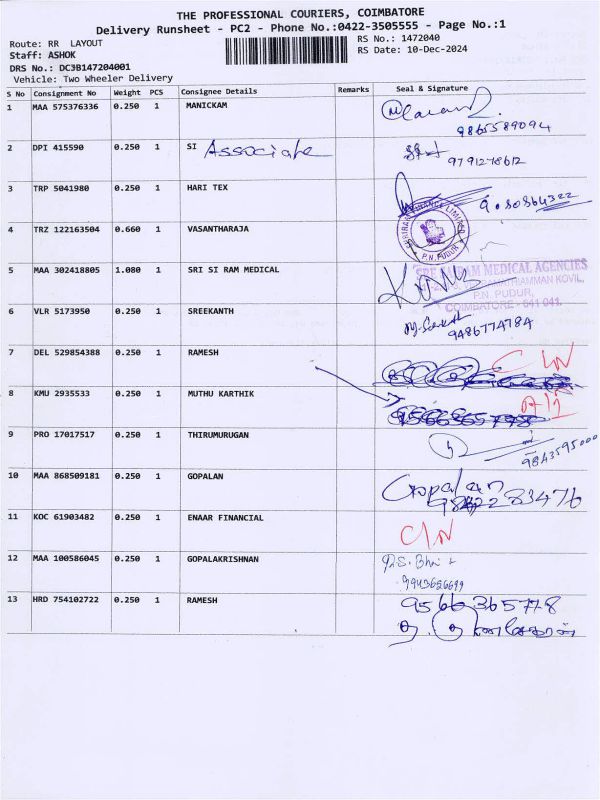 THE PROFESSIONAL COURIERS, COIMBATORE
Delivery Runsheet - PC2 - Phone No.:0422-3505555 - Page No.:1
Route: RR LAYOUT
RS No.: 1472040
Staff: ASHOK
RS Date: 10-Dec-2024
DRS No.: DC3B147204001
Vehicle: Two Wheeler Delivery
S No Consignment No Weight PCS Consignee Details Remarks Seal & Signature
1 MAA 575376336 0.250 1 MANICKAM
9865589094
2 DPI 415590 0.250 1 SI Associate
9791278612
3 TRP 5041980 0.250 1 HARI TEX
4 TRZ 122163504 0.660 1 VASANTHARAJA
P.N. PUDUR
5 MAA 302418805 1.080 1 SRI SI RAM MEDICAL
MEDICAL AGENCIES
KOVIL,
P.N. PUDUR,
COIMBATORE - 641 041.
6 VLR 5173950 0.250 1 SREEKANTH
9486774784
7 DEL 529854388 0.250 1 RAMESH
8 KMU 2935533 0.250 1 MUTHU KARTHIK
9 PRO 17017517 0.250 1 THIRUMURUGAN
9843595000
10 MAA 868509181 0.250 1 GOPALAN
Gopalan
11 KOC 61903482 0.250 1 ENAAR FINANCIAL
C/N
12 MAA 100586045 0.250 1 GOPALAKRISHNAN
13 HRD 754102722 0.250 1 RAMESH
9566365778